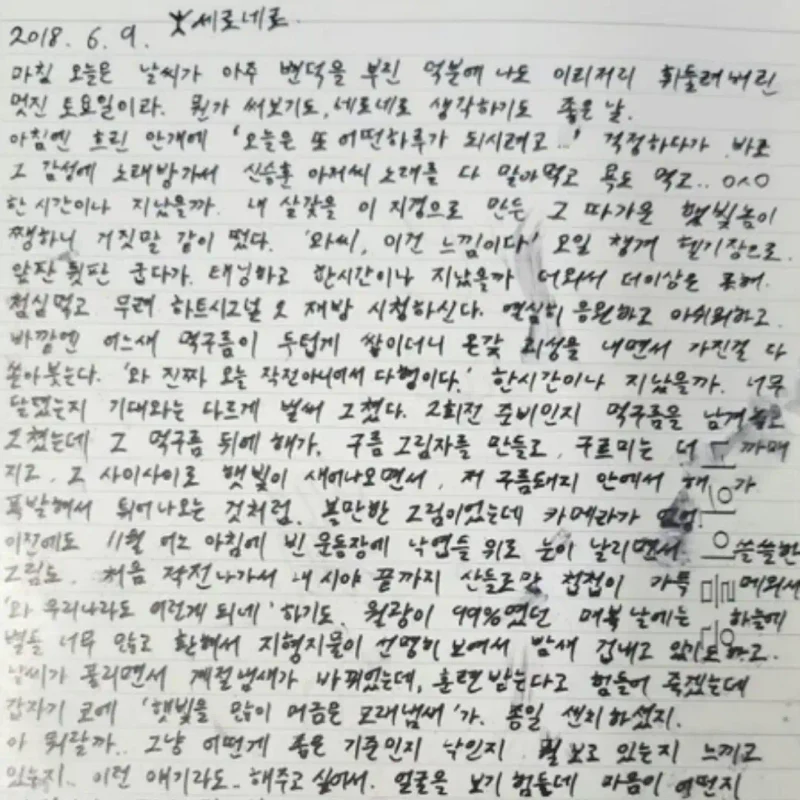 2018. 6. 9. 세로네로.
마침 오늘은 날씨가 아주 변덕을 부린 덕분에 나도 이리저리 휘둘려버린
멋진 토요일이라. 뭔가 써보기도, 네로네로 생각하기도 좋은 날.
아침엔 흐린 안개에 '오늘은 또 어떤하루가 되시려고..' 걱정하다가 바로
그 감성에 노래방가서 신승훈 아저씨 노래를 다 말아먹고 욕도 먹고.. ㅇㅅㅇ
한 시간이나 지났을까. 내 살갗을 이 지경으로 만든 그 따가운 햇빛놈이
쨍하니 거짓말 같이 떴다. '와씨, 이건 느낌이다' 오일 챙겨 헬기장으로.
앞판 뒷판 굽다가. 태닝하고 한시간이나 지났을까 더워서 더이상은 못해.
점심먹고 무려 하트시그널 2 재방 시청하신다. 열심히 응원하고 아쉬워하고.
바깥엔 어느새 먹구름이 두텁게 쌓이더니 온갖 괴성을 내면서 가진걸 다
쏟아붓는다. '와 진짜 오늘 작전아니어서 다행이다.' 한시간이나 지났을까. 너무
달랬는지 기대와는 다르게 벌써 그쳤다. 2회전 준비인지 먹구름을 남겨놓고
그쳤는데 그 먹구름 뒤에 해가. 구름 그림자를 만들고, 구르미는 더 까매
지고, 그 사이사이로 햇빛이 새어나오면서, 저 구름돼지 안에서 해가
폭발해서 튀어나오는 것처럼. 볼만한 그림이었는데 카메라가 없었
이전에도 11월 어느 아침에 빈 운동장에 낙엽들 위로 눈이 날리면서 쓸쓸한
그림도, 처음 작전나가서 내 시야 끝까지 산들로만 첩첩이 가득 메워서
'와 우리나라도 이런게 되네' 하기도. 월광이 99%였던 매복날에는 하늘에
별들 너무 많고 환해서 지형지물이 선명히 보여서 밤새 겁내고 있기도하고.
날씨가 풀리면서 계절냄새가 바뀌었는데, 훈련받는다고 힘들어 죽겠는데
갑자기 코에 '햇빛을 많이 머금은 모래냄새'가. 종일 센치하셨지.
아 뭐랄까.. 그냥 어떤게 좋은 기준인지 낙인지 뭘 보고 있는지 느끼고
있는지.. 이런 얘기라도.. 해주고 싶어서. 얼굴을 보기 힘든데 마음이 어떤지